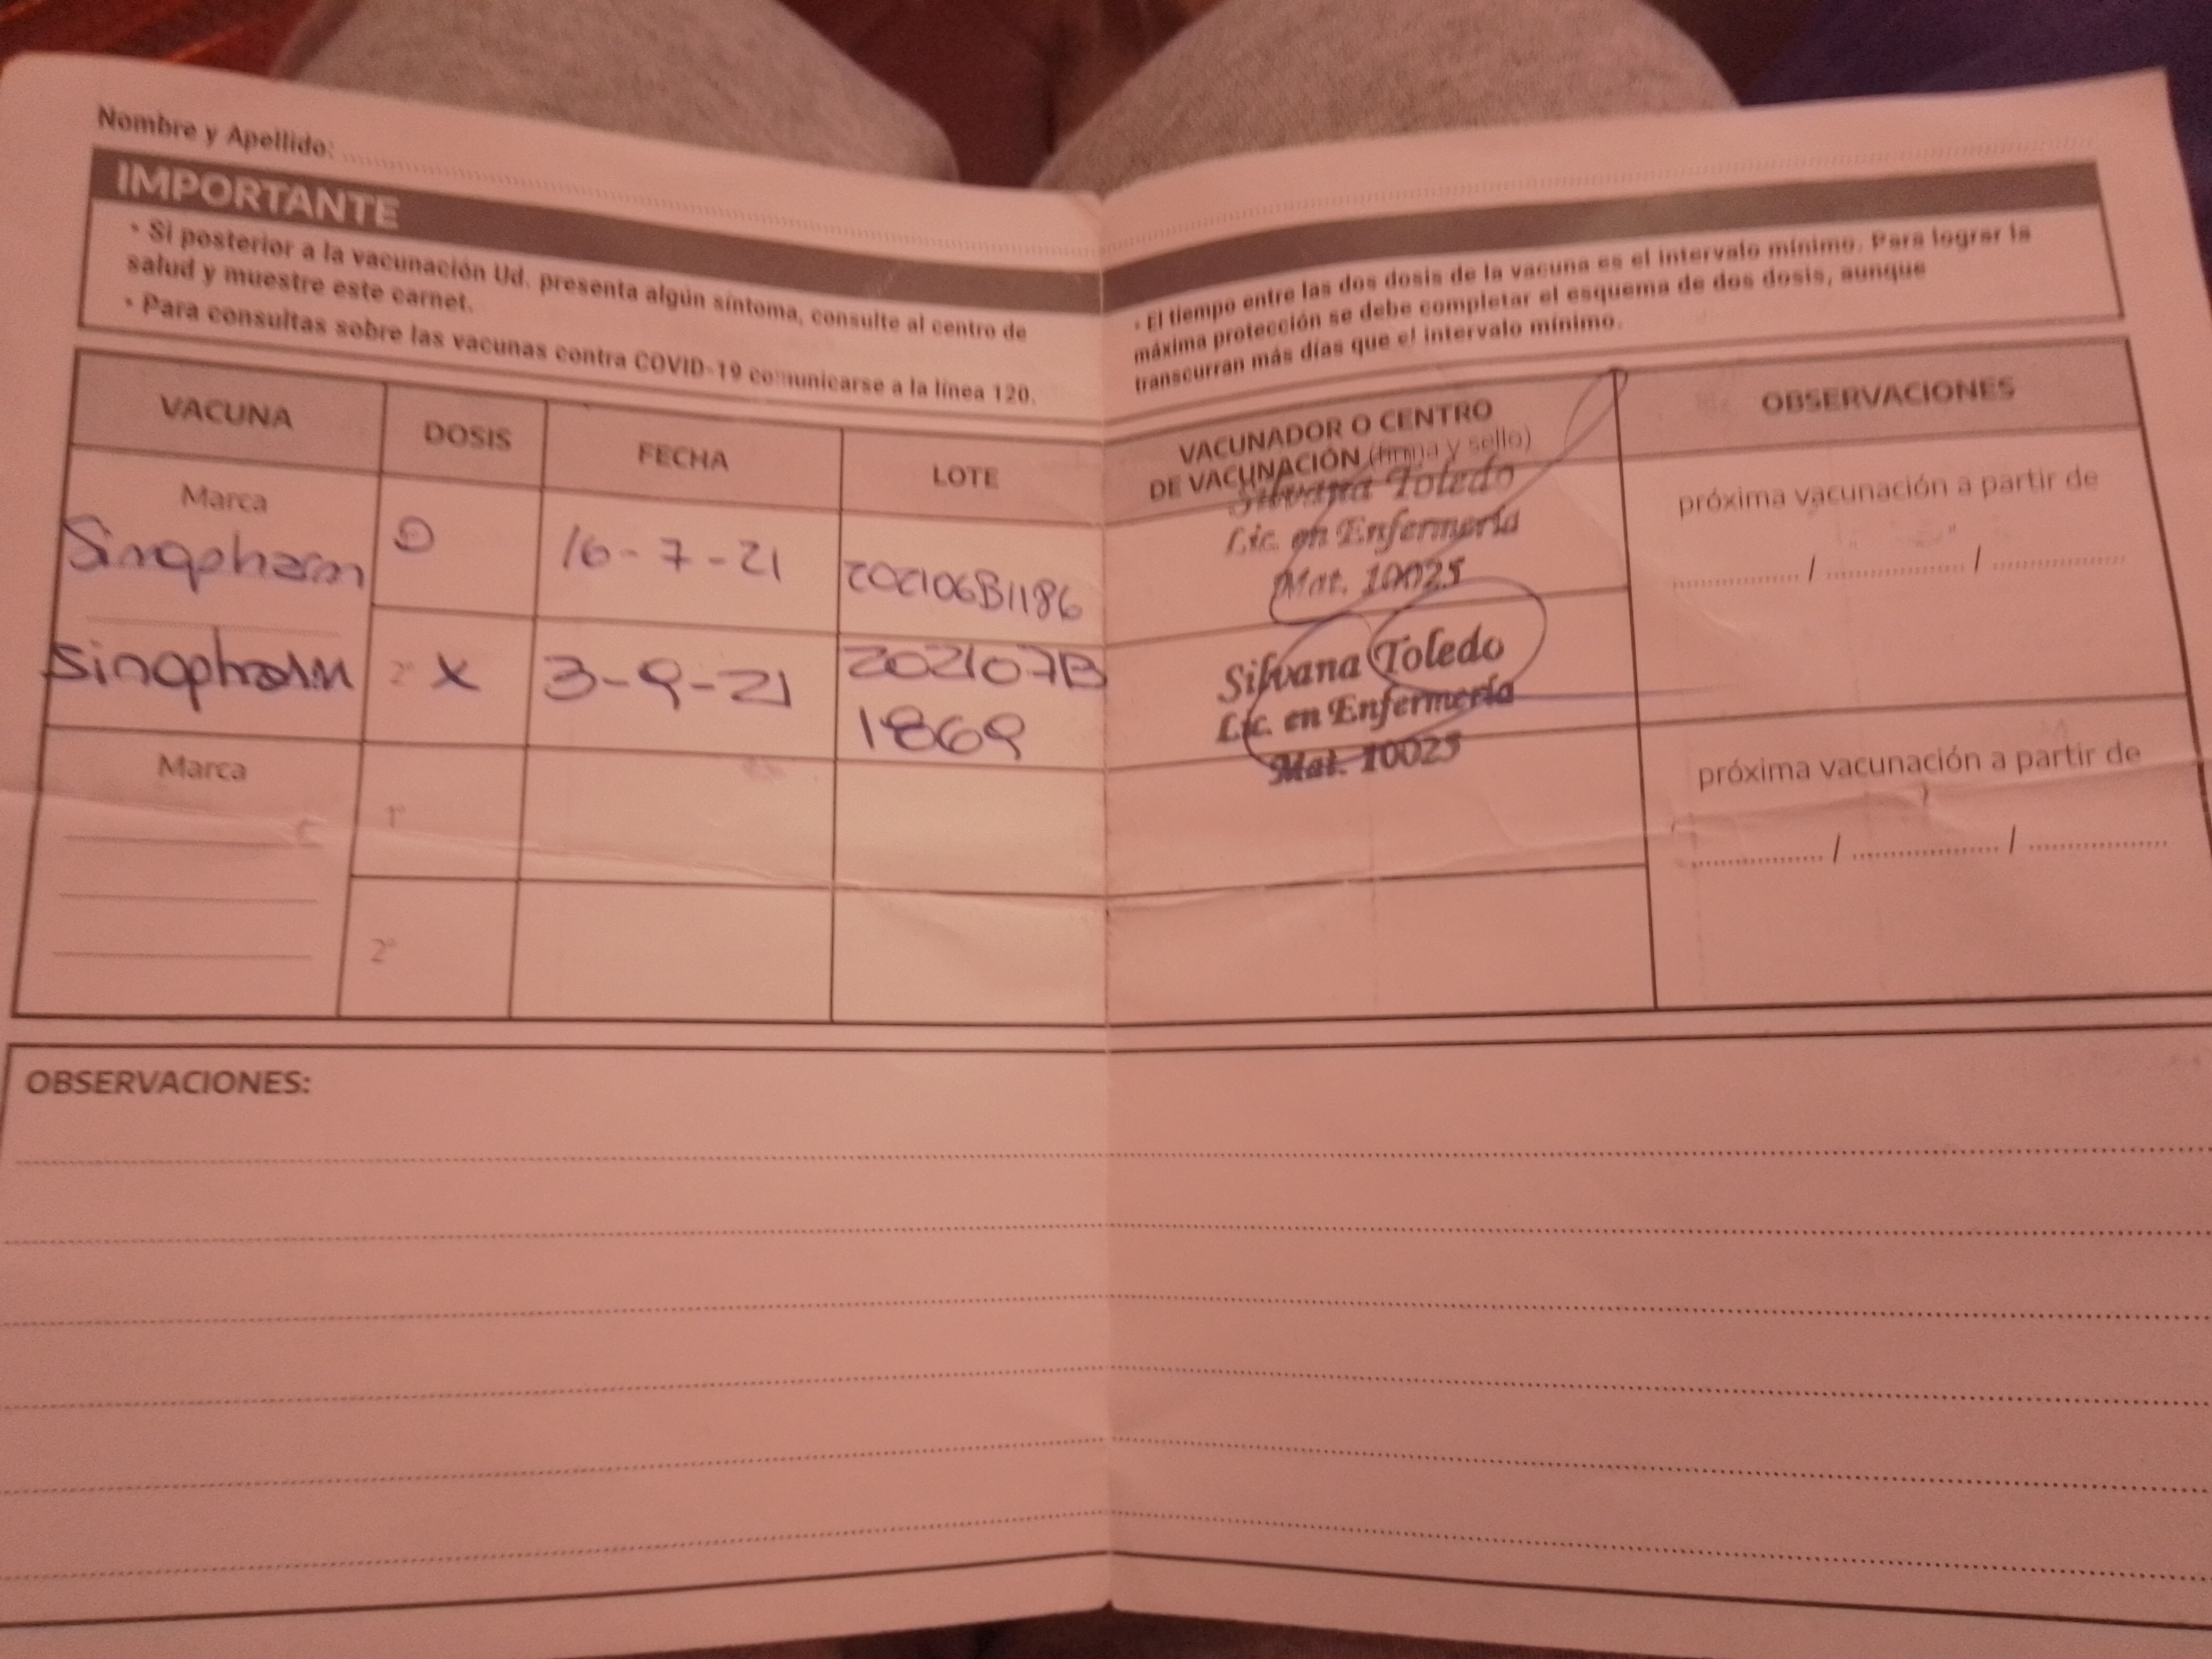 Nombre y Apellido:
IMPORTANTE
• Si posterior a la vacunación Ud. presenta algún síntoma, consulte al centro de
salud y muestre este carnet.
• Para consultas sobre las vacunas contra COVID-19 comunicarse a la línea 120.
• El tiempo entre las dos dosis de la vacuna es el intervalo mínimo. Para lograr la
máxima protección se debe completar el esquema de dos dosis, aunque
transcurran más días que el intervalo mínimo.
VACUNA DOSIS FECHA LOTE VACUNADOR O CENTRO
DE VACUNACIÓN (firma y sello) OBSERVACIONES
Marca
Sinopharm 16-7-21 202106B1186
Silvana Toledo
Lic. en Enfermería
Mat. 10025
próxima vacunación a partir de
/ /
Sinopharm 2° X 3-9-21 202107B
1869
Silvana Toledo
Lic. en Enfermería
Mat. 10025
Marca
1°
2°
próxima vacunación a partir de
/ /
OBSERVACIONES: